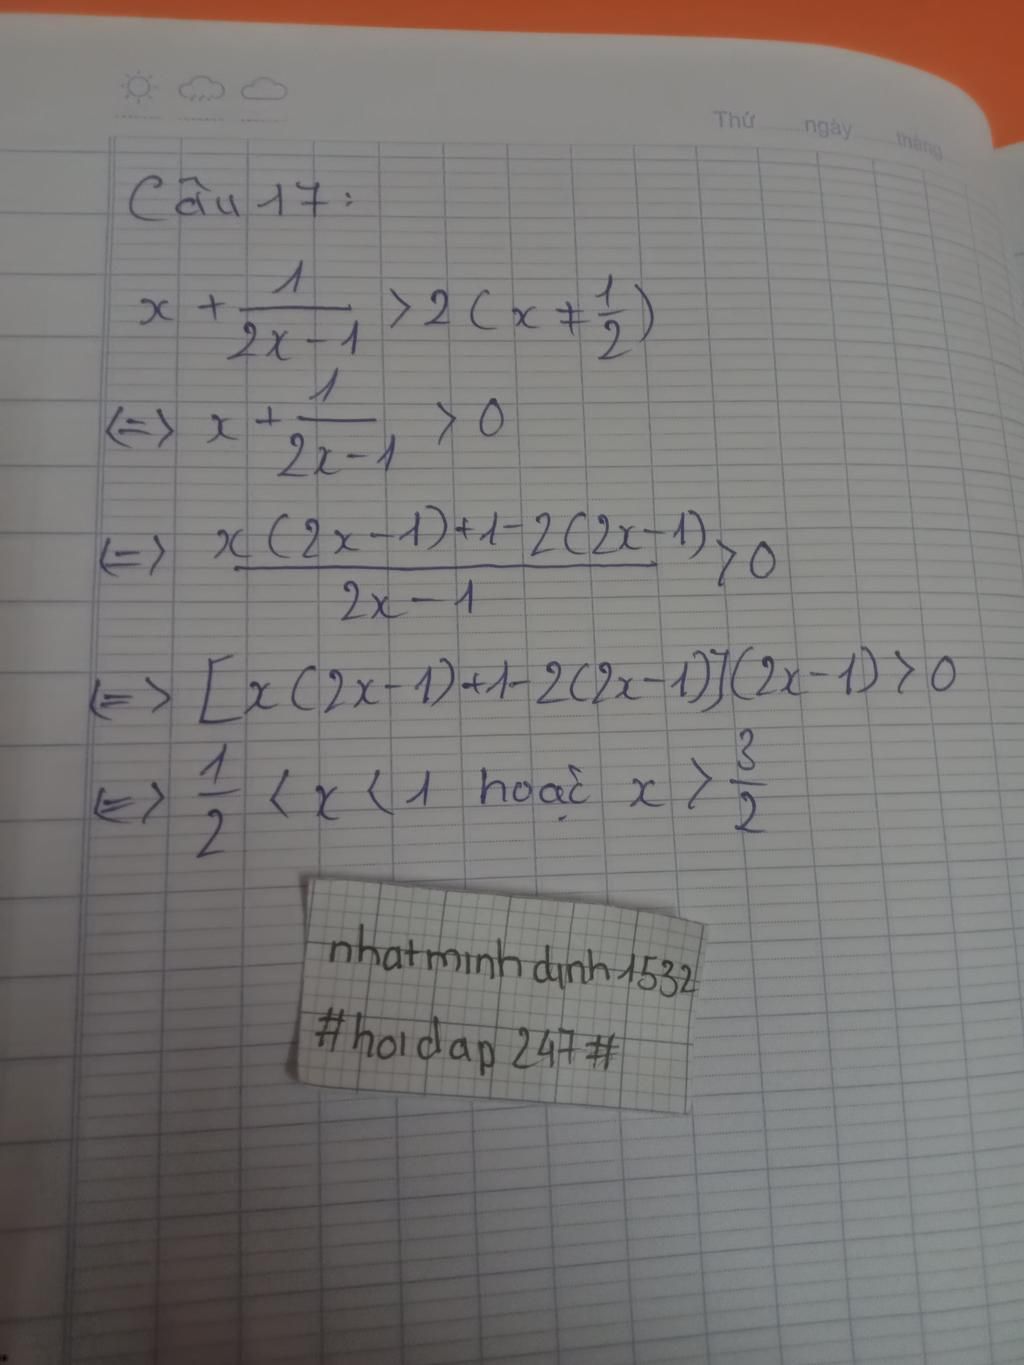 Thứ ngày tháng
Câu 17:
x + 1/(2x-1) > 2 (x ≠ 1/2)
<=> x + 1/(2x-1) > 0
<=> (x(2x-1)+1-2(2x-1))/(2x-1) > 0
<=> [x(2x-1)+1-2(2x-1)](2x-1) > 0
<=> 1/2 < x < 1 hoặc x > 3/2
nhatminhdinh1532
#hoidap247#